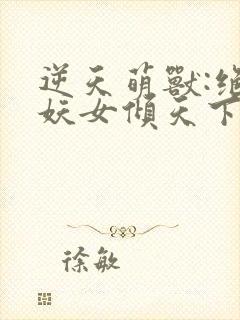 逆天萌獸:絕
妖女傾天下
徐敏